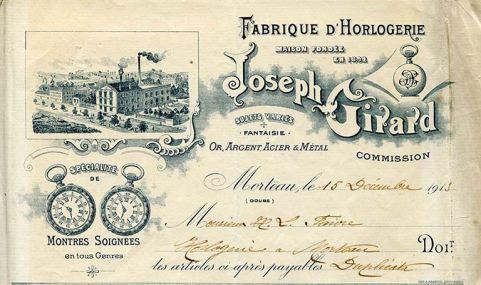 FABRIQUE D'HORLOGERIE
MAISON FONDÉE
Joseph Girard
SUJETS VARIÉS
FANTAISIE
OR, ARGENT, ACIER & MÉTAL
COMMISSION
SPÉCIALITÉ
DE
MONTRES SOIGNÉES
en tous Genres
Morteau, le 15 Décembre 1913
(DOUBS)
Monsieur
Horlogerie à Morteau
Doit
les articles ci-après payables Duplicata